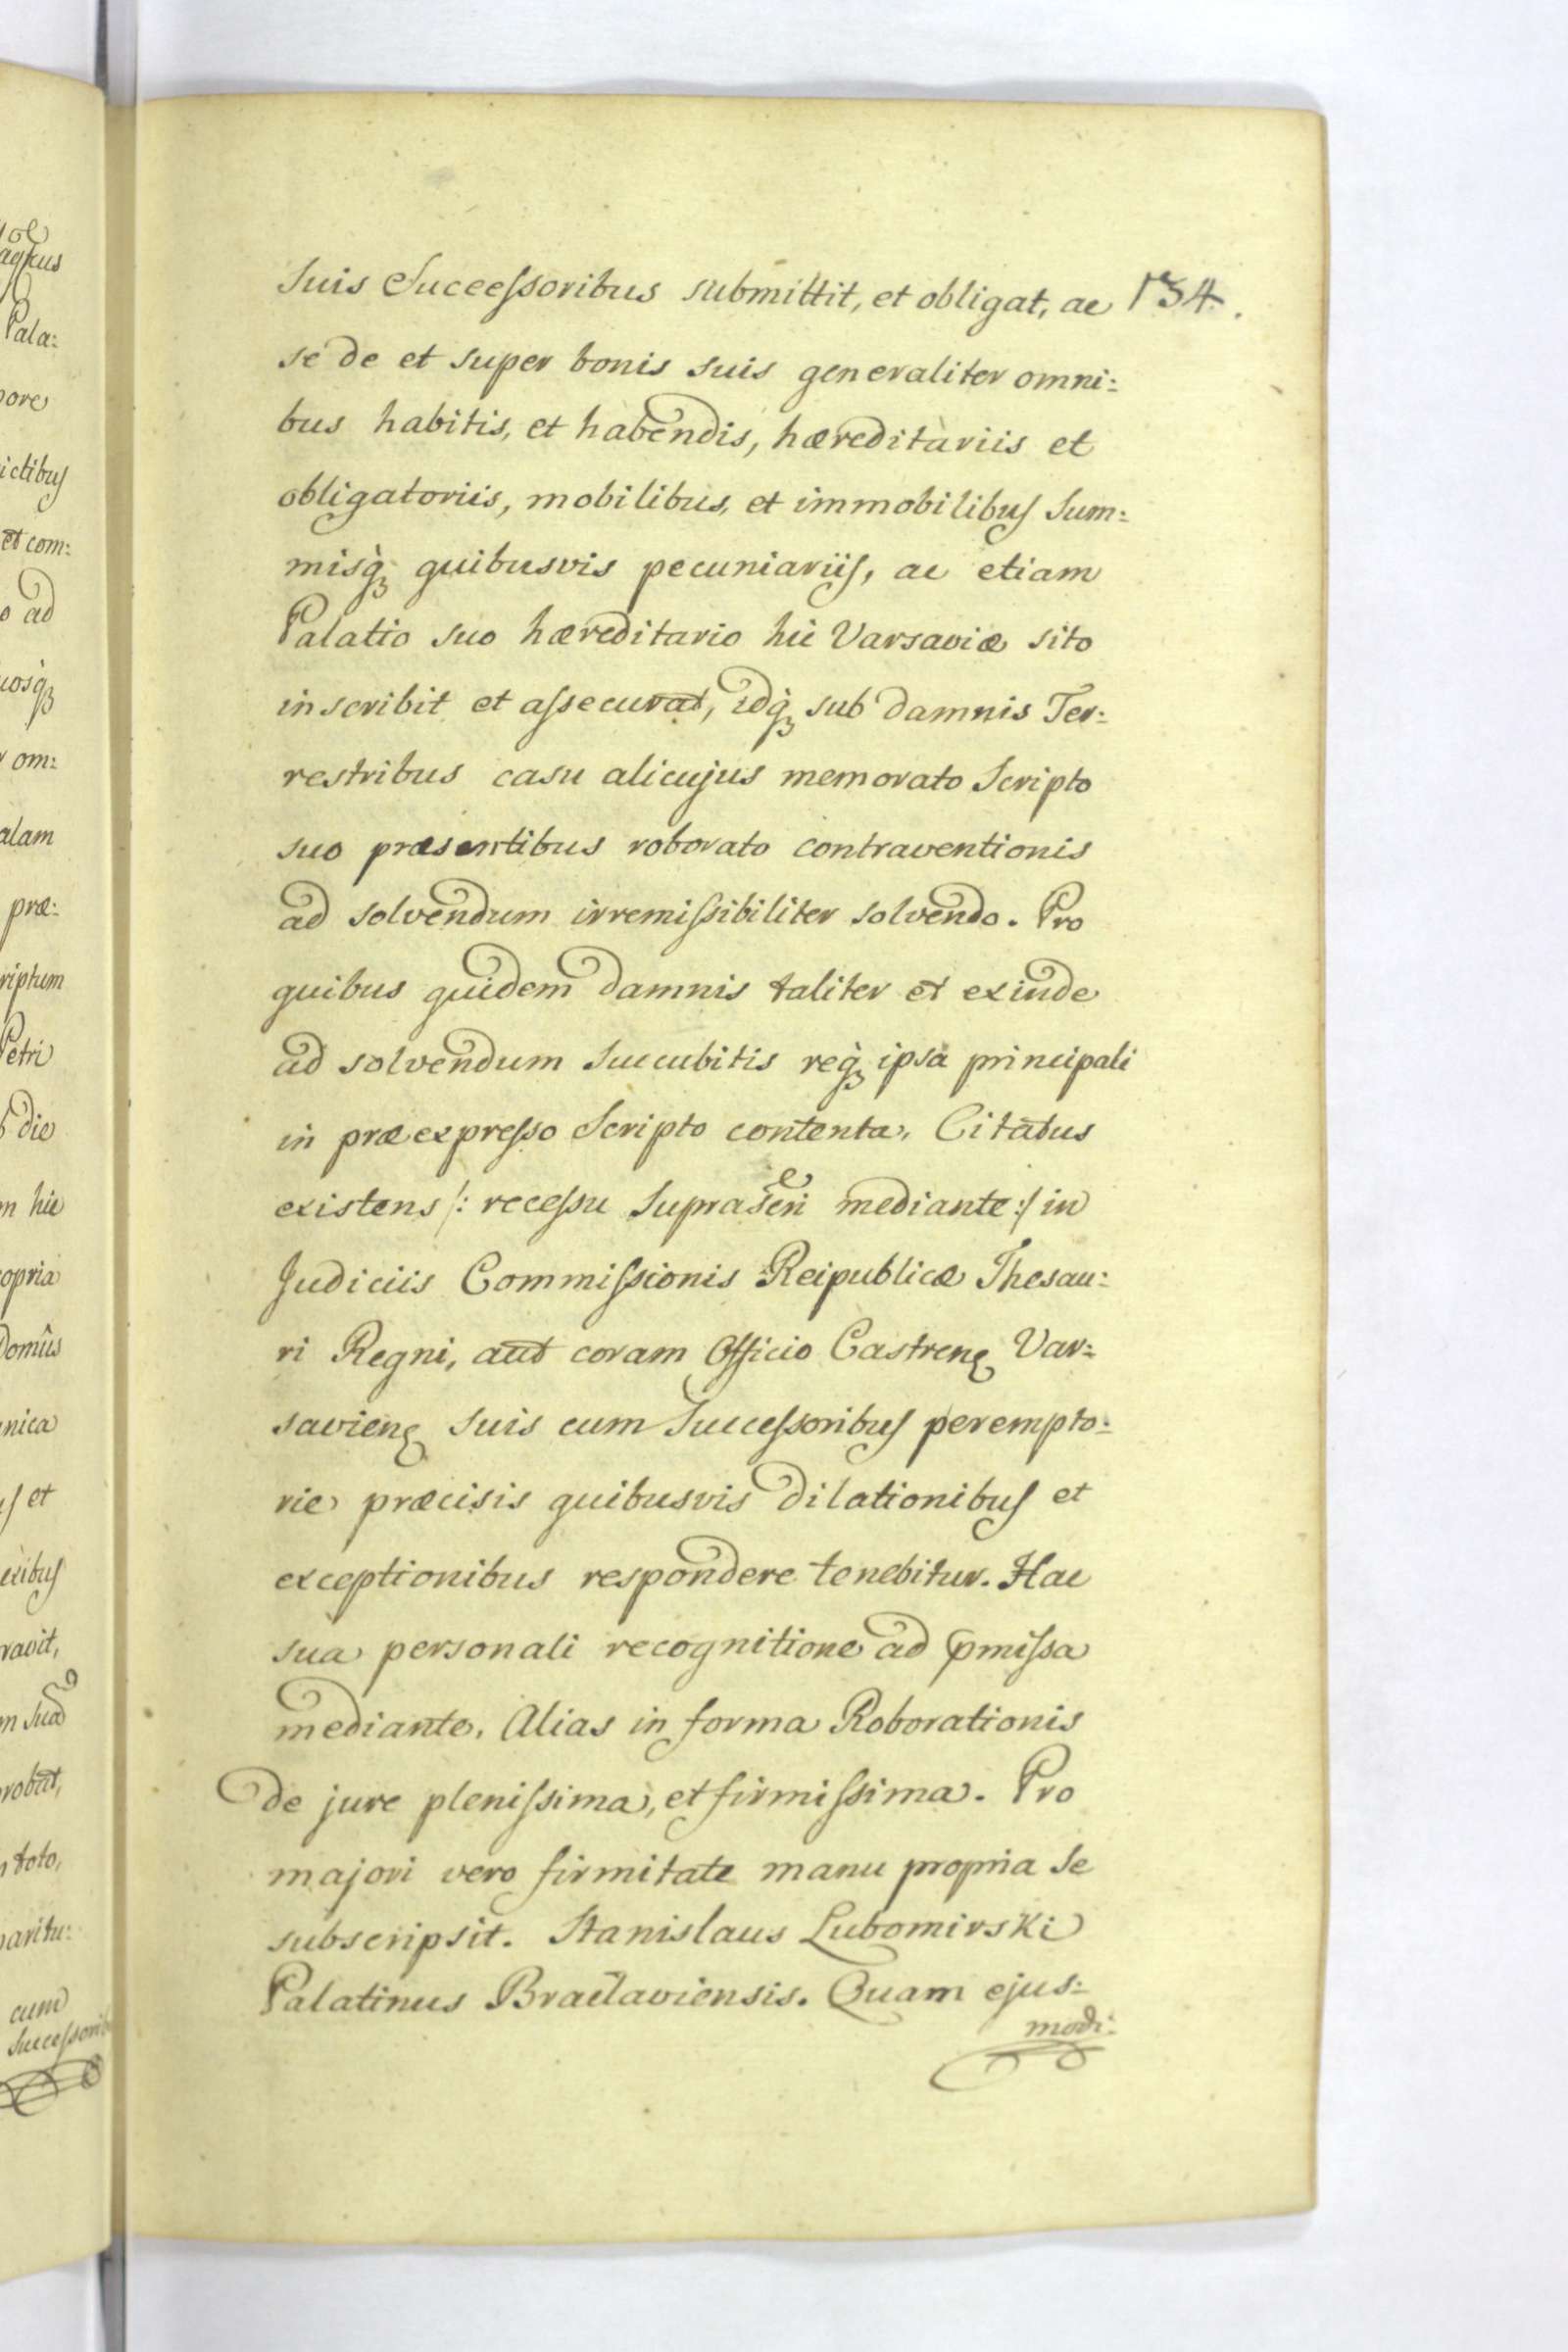 suis Successoribus submittit, et obligat, ac 134.
se de et super bonis suis generaliter omni:
bus habitis, et habendis, hæreditariis et
obligatoriis, mobilibus, et immobilibus Sum:
misq̀ꝫ quibusvis pecuniariis, ac etiam
Palatio suo hæreditario hic Varsaviæ sito
inscribit et assecurat, idq̀ꝫ sub damnis Ter:
restribus casu alicujus memorato Scripto
suo præsentibus roborato contraventionis
ad solvendum irremissibiliter solvendo. Pro
quibus quidem damnis taliter et exinde
ad solvendum succubitis req̀ꝫ ipsa principali
in præexpresso Scripto contenta, Citatus
existens /: recessu mediante :/ in
Judiciis Commissionis Reipublicæ Thesau:
ri Regni, aut coram Officio Castrenꝫ Var:
savienꝫ suis cum Successoribus perempto:
rie præcisis quibusvis dilationibus et
exceptionibus respondere tenebitur. Hac
sua personali recognitione ad pmissa
mediante. Alias in forma Roborationis
de jure plenissima, et firmissima. Pro
majori vero firmitate manu propria se
subscripsit. Stanislaus Lubomirski
Palatinus Braclaviensis. Quam ejus:
modi:
ad
Pala:
et com:
om:
alam
præ:
riptum
Petri
die
hic
nica
et
toto,
cum